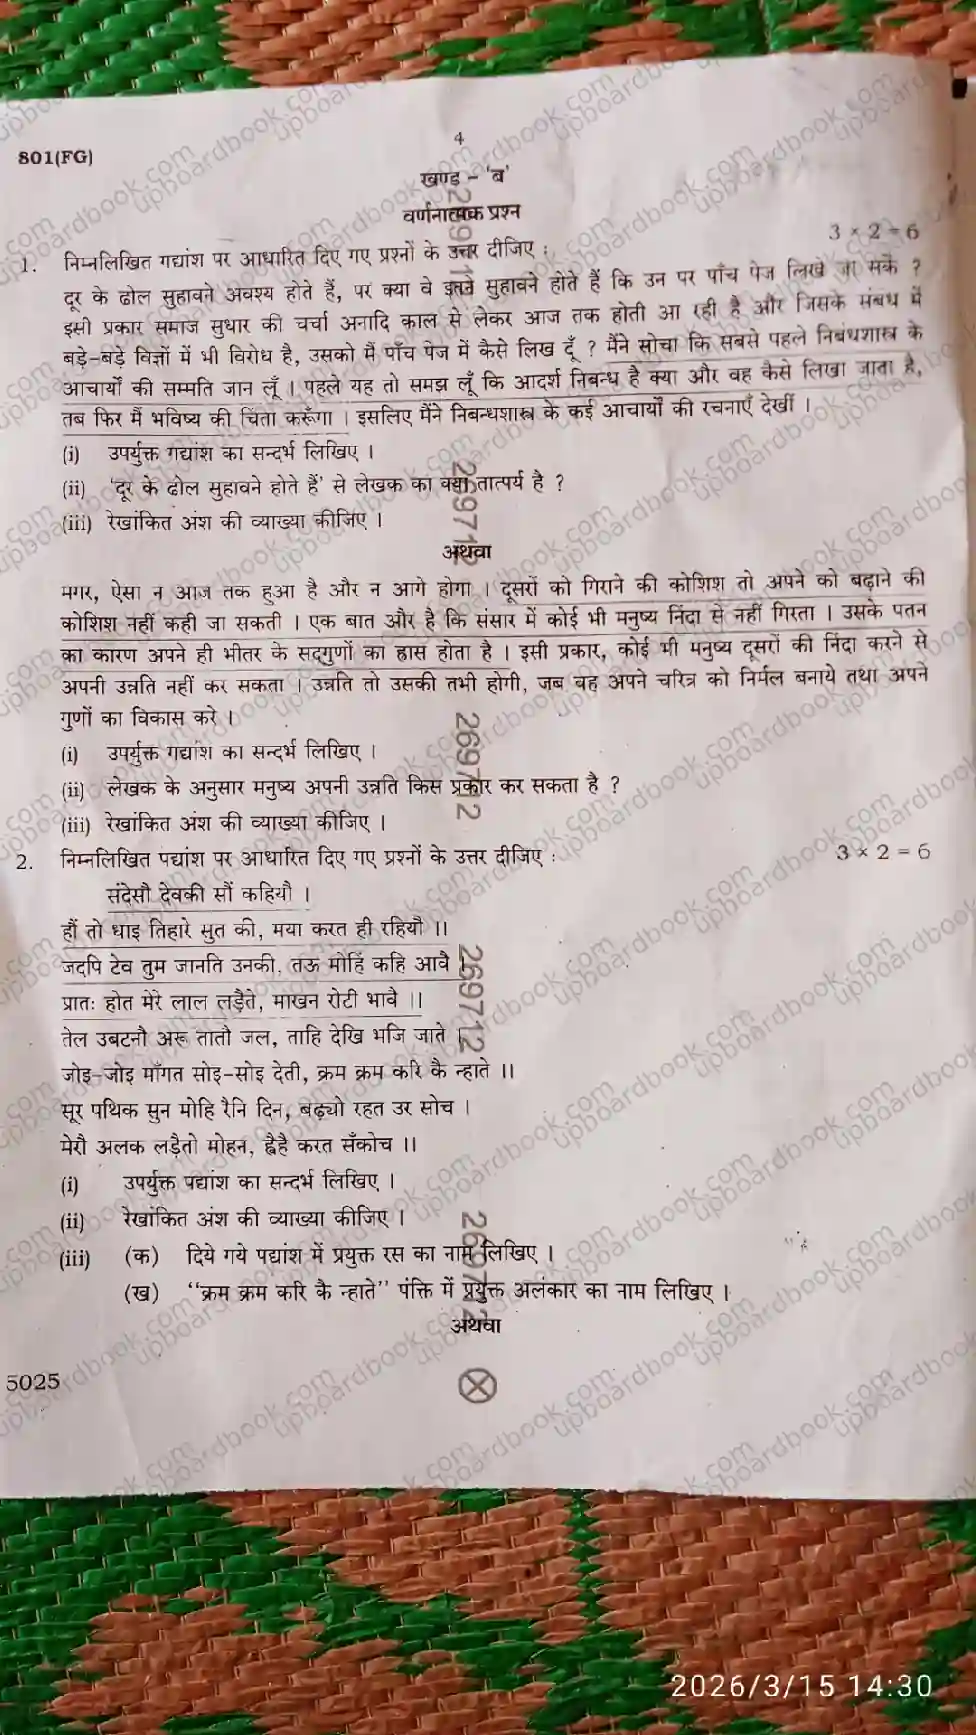 4
801(FG)
खण्ड - 'ब'
वर्णनात्मक प्रश्न
3 × 2 = 6
1. निम्नलिखित गद्यांश पर आधारित दिए गए प्रश्नों के उत्तर दीजिए :
दूर के ढोल सुहावने अवश्य होते हैं, पर क्या वे इतने सुहावने होते हैं कि उन पर पाँच पेज लिखे जा सकें ?
इसी प्रकार समाज सुधार की चर्चा अनादि काल से लेकर आज तक होती आ रही है और जिसके संबध में
बड़े-बड़े विज्ञों में भी विरोध है, उसको मैं पाँच पेज में कैसे लिख दूँ ? मैंने सोचा कि सबसे पहले निबंधशास्त्र के
आचार्यों की सम्मति जान लूँ । पहले यह तो समझ लूँ कि आदर्श निबन्ध है क्या और वह कैसे लिखा जाता है,
तब फिर मैं भविष्य की चिंता करूँगा । इसलिए मैंने निबन्धशास्त्र के कई आचार्यों की रचनाएँ देखीं ।
(i) उपर्युक्त गद्यांश का सन्दर्भ लिखिए ।
(ii) 'दूर के ढोल सुहावने होते हैं' से लेखक का क्या तात्पर्य है ?
(iii) रेखांकित अंश की व्याख्या कीजिए ।
अथवा
मगर, ऐसा न आज तक हुआ है और न आगे होगा । दूसरों को गिराने की कोशिश तो अपने को बढ़ाने की
कोशिश नहीं कही जा सकती । एक बात और है कि संसार में कोई भी मनुष्य निंदा से नहीं गिरता । उसके पतन
का कारण अपने ही भीतर के सद्‌गुणों का ह्रास होता है । इसी प्रकार, कोई भी मनुष्य दूसरों की निंदा करने से
अपनी उन्नति नहीं कर सकता । उन्नति तो उसकी तभी होगी, जब वह अपने चरित्र को निर्मल बनाये तथा अपने
गुणों का विकास करे ।
(i) उपर्युक्त गद्यांश का सन्दर्भ लिखिए ।
(ii) लेखक के अनुसार मनुष्य अपनी उन्नति किस प्रकार कर सकता है ?
(iii) रेखांकित अंश की व्याख्या कीजिए ।
2. निम्नलिखित पद्यांश पर आधारित दिए गए प्रश्नों के उत्तर दीजिए : 3 × 2 = 6
संदेसौ देवकी सौं कहियौ ।
हौं तो धाइ तिहारे सुत की, मया करत ही रहियौ ।।
जदपि टेव तुम जानति उनकी, तऊ मोहिं कहि आवै ।
प्रातः होत मेरे लाल लड़ैते, माखन रोटी भावै ।।
तेल उबटनौ अरू तातौ जल, ताहि देखि भजि जाते ।
जोइ-जोइ माँगत सोइ-सोइ देती, क्रम क्रम करि कै न्हाते ।।
सूर पथिक सुन मोहि रैनि दिन, बढ़्यो रहत उर सोच ।
मेरौ अलक लड़ैतो मोहन, ह्वैहै करत सँकोच ।।
(i) उपर्युक्त पद्यांश का सन्दर्भ लिखिए ।
(ii) रेखांकित अंश की व्याख्या कीजिए ।
(iii) (क) दिये गये पद्यांश में प्रयुक्त रस का नाम लिखिए ।
(ख) "क्रम क्रम करि कै न्हाते" पंक्ति में प्रयुक्त अलंकार का नाम लिखिए ।
अथवा
5025
269712
269712
269712
269712
269712
upboardbook.com
2026/3/15 14:30